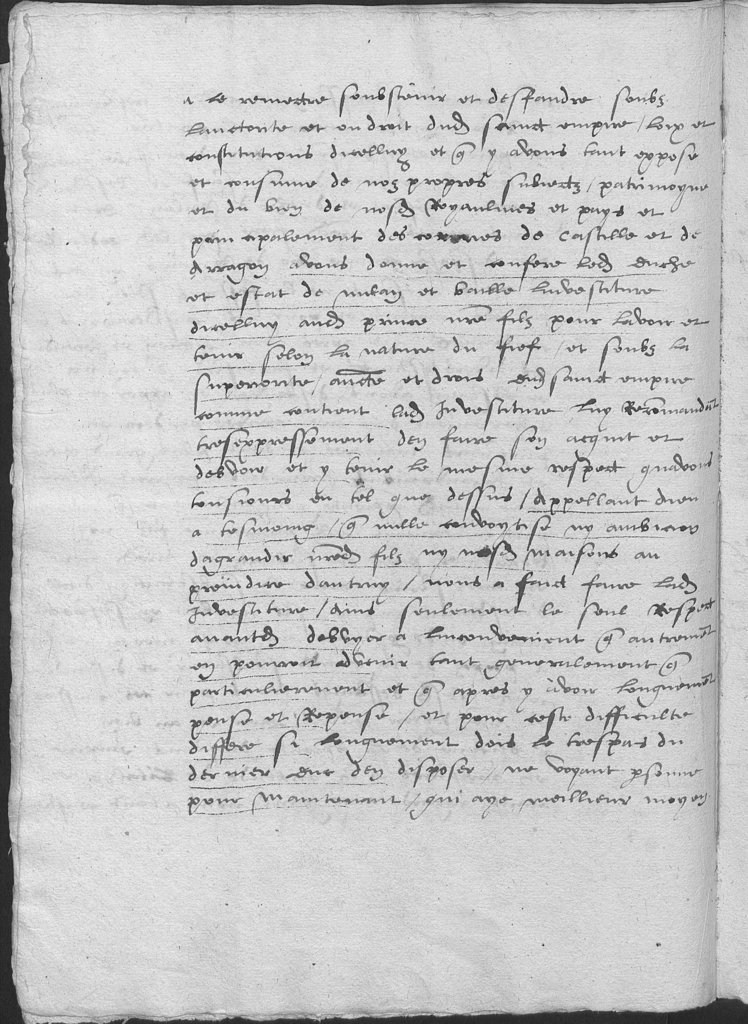 a le remectre soubstenir et desfandre soubz
lauctorite et en droit dud sainct empire / loix et
constitutions dicelluy et q̃ y avons tant expose
et consume de noz propres subiectz / patrimoyne
et du bien de nosd Royaulmes et pays et
principalement des corones de Castille et de
Arragon avons donne et confere led duche
et estat de milan et baille linvestiture
dicelluy aud prince nr̃e filz pour lavoir et
tenir selon la nature du fief / et soubz la
superiorite / aucte et drois dud sainct empire
comme contient lad Investiture luy Recõmandãt
tresexpressement den faire son acquit et
debvoir et y tenir le mesme respect quavons
tousiours eu tel que dessus / Appellant dieu
a tesmoing / q̃ nulle convoytise ny ambicion
dagrandir nr̃ed filz ny nosd maisons au
preiudice dautruy / nous a faict faire lad
Investiture / Ains seulement le seul Respect
avantd debvyer a linconvenient q̃ autremẽt
en pourroit advenir tant generalement q̃
particulierement et q̃ apres y avoir longuemẽt
pense et Repense / et pour ceste difficulte
differe si longuement dois le trespas du
dernier duc den disposer / ne voyant psonne
pour maintenant / qui aye meillieur moyen